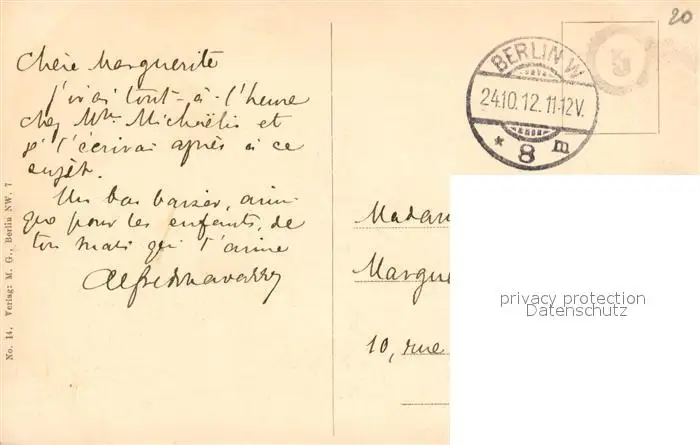 20
Chère Marguerite
j'irai tout-à-l'heure
chez Mme Michaëlis et
je t'écrirai après à ce
sujet.
Un bon baiser, ainsi
que pour les enfants, de
ton mari qui t'aime
Madam
Margue
10, rue
BERLIN W
24.10.12. 11-12V.
* 8 m
privacy protection
Datenschutz
No. 14. Verlag: M. G., Berlin NW. 7